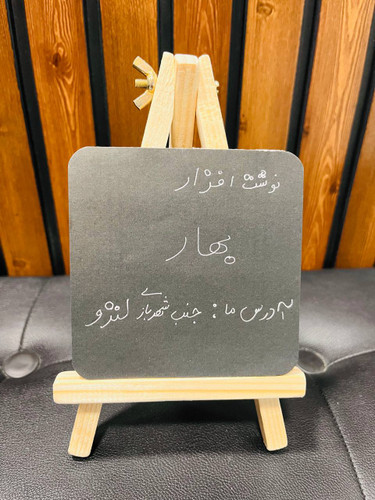 نوشت افزار
بهار
آدرس ما : جنب شهربازی